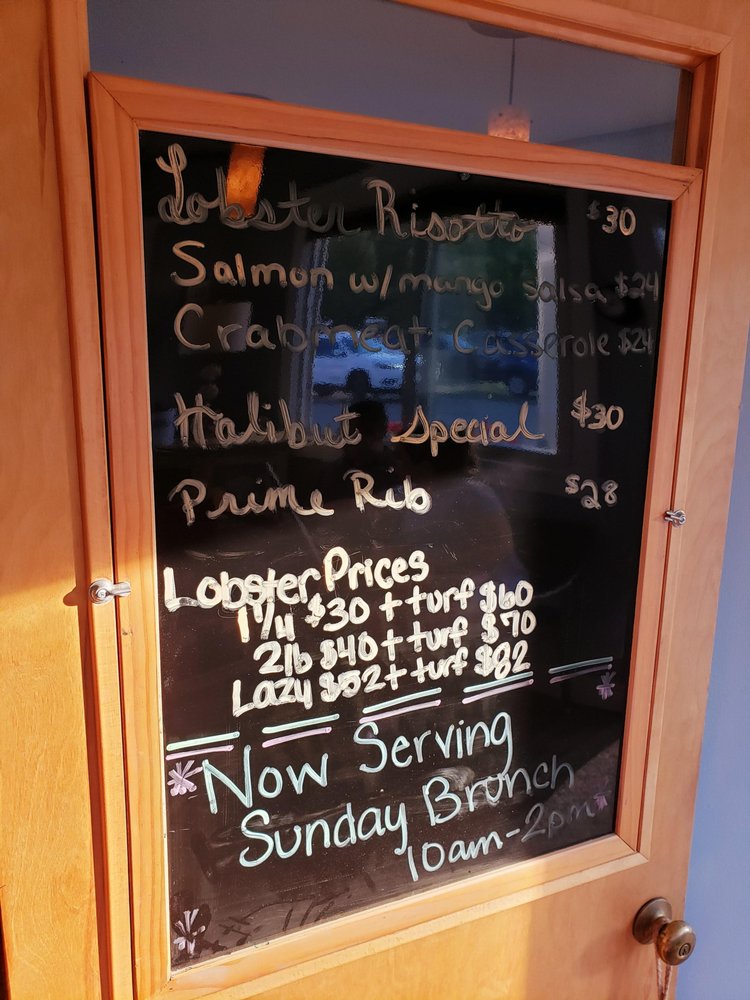 Lobster Risotto $30
Salmon w/ mango salsa $24
Crabmeat Casserole $24
Halibut Special $30
Prime Rib $28
Lobster Prices
1 1/4 $30 + turf $60
2lb $40 + turf $70
Lazy $52 + turf $82
*Now Serving
Sunday Brunch
10am-2pm*